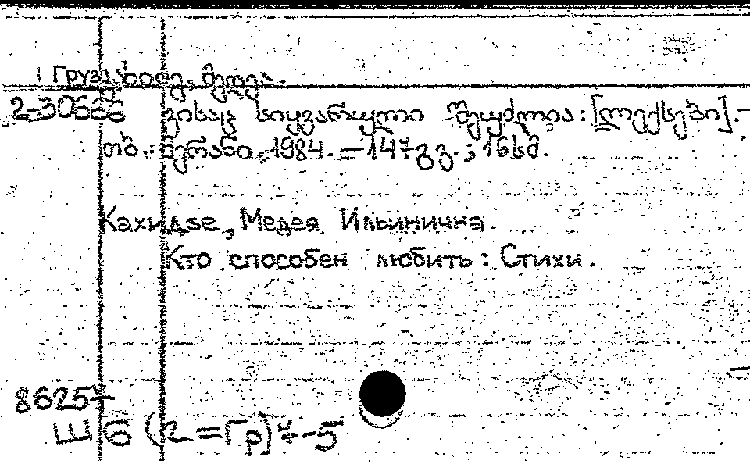 Груз
კახიძე, მედეა.
2-30666 ვისაც სიყვარული შეუძლია: [ლექსები].-
თბ.: მერანი, 1984. — 147 გვ.; 16სმ.
Кахидзе, Медея Ильинична.
Кто способен любить: Стихи.
86257
Ш6(2=Гр)7-5